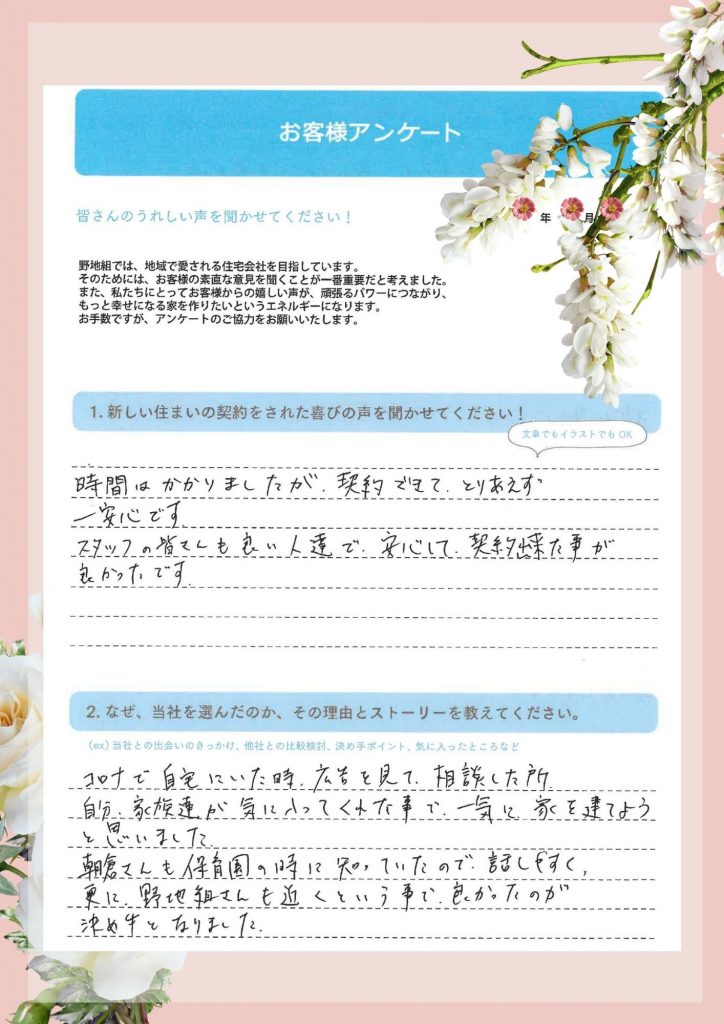 お客様アンケート
皆さんのうれしい声を聞かせてください！
年 月
野地組では、地域で愛される住宅会社を目指しています。
そのためには、お客様の素直な意見を聞くことが一番重要だと考えました。
また、私たちにとってお客様からの嬉しい声が、頑張るパワーにつながり、
もっと幸せになる家を作りたいというエネルギーになります。
お手数ですが、アンケートのご協力をお願いいたします。
1. 新しい住まいの契約をされた喜びの声を聞かせてください！
文章でもイラストでも OK
時間はかかりましたが、契約できて、とりあえず
一安心です。
スタッフの皆さんも良い人達で、安心して、契約出来た事が
良かったです。
2. なぜ、当社を選んだのか、その理由とストーリーを教えてください。
（ex）当社との出会いのきっかけ、他社との比較検討、決め手ポイント、気に入ったところなど
コロナで自宅にいた時、広告を見て、相談した所、
自分、家族達が気に入ってくれた事で、一気に家を建てよう
と思いました。
朝倉さんも保育園の時に知っていたので、話しやすく、
更に、野地組さんも近くという事で、良かったのが
決め手となりました。